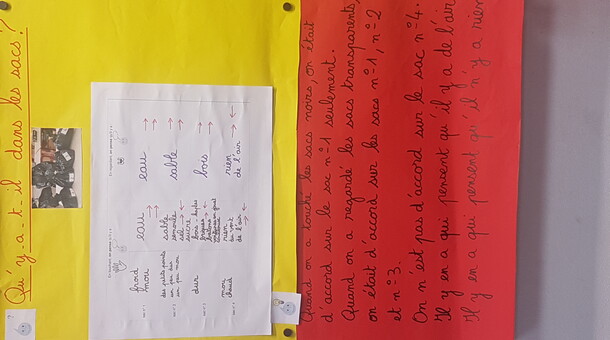 Qu'y-a-t-il dans les sacs ?
froid
mou
eau
eau
des petits points
un peu dur
un peu mou
sable
semoule
sel
sucre
sable
dur
bois
bois
mou
chaud
rien
du vent
de l'air
rien
de l'air
Quand on a touché les sacs noirs, on était
d'accord sur le sac n°1 seulement.
Quand on a regardé les sacs transparents,
on était d'accord sur les sacs n°1, n°2
et n°3.
On n'est pas d'accord sur le sac n°4.
Il y en a qui pensent qu'il y a de l'air
Il y en a qui pensent qu'il n'y a rien